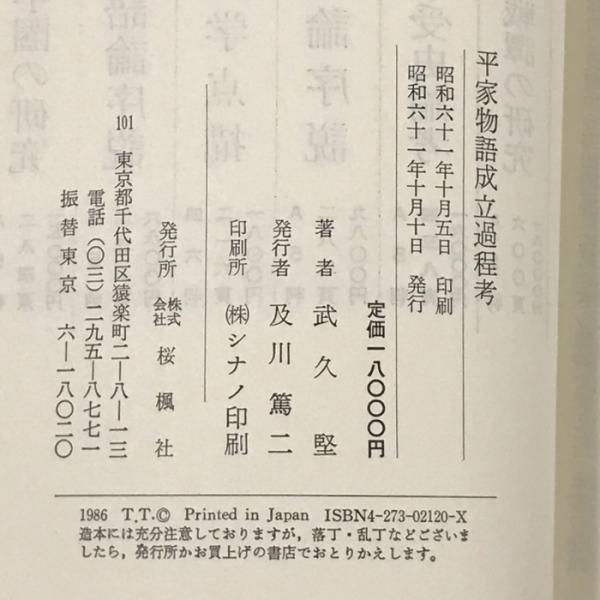 平家物語成立過程考
昭和六十一年十月五日 印刷
昭和六十一年十月十日 発行
定価一八〇〇〇円
著者 武久堅
発行者 及川篤二
印刷所 ㈱シナノ印刷
発行所 株式会社 桜楓社
101 東京都千代田区猿楽町二―八―一三
電話(〇三)二九五―八七七一
振替東京 六―一八〇二〇
1986 T.T.© Printed in Japan ISBN4-273-02120-X
造本には充分注意しておりますが,落丁・乱丁などございま
したら,発行所かお買上げの書店でおとりかえします。